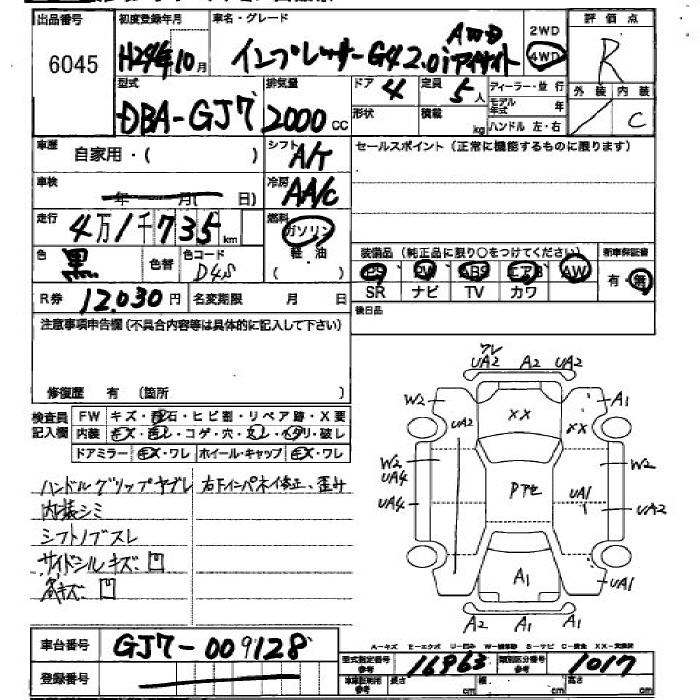 出品番号 初度登録年月 車名・グレード 2WD 評価点
6045 H24年10月 インプレッサーG4 2.0i アイサイト AWD 4WD R
型式 排気量 ドア 4 定員 5人 ディーラー・並行 外装 内装
DBA-GJ7 2000cc 形状 積載 kg モデル年式 年 / C
ハンドル 左・右
車歴 自家用・( ) シフト A/T セールスポイント(正常に機能するものに限ります)
車検 年 月( 日) 冷房 AA/C
走行 4万1千735km 燃料 ガソリン
軽・油
( )
色 黒 色替 色コード D4S
装備品(純正品に限り○をつけてください) 新車保証書
PS PW ABS エアB AW 有・無
SR ナビ TV カワ
R券 12.030円 名変期限 月 日 後日品
注意事項申告欄(不具合内容等は具体的に記入して下さい)
修復歴 有 〔箇所 〕
検査員記入欄 FW キズ・飛石・ヒビ割・リペア跡・X要
内装 キX・コゲ・穴・ヘタリ・破レ
ドアミラー キX・ワレ ホイール・キャップ キX・ワレ
ハンドルグリップヤブレ 右下インパネイ修正、歪み
内装シミ
シフトノブスレ
サイドシルキズ 凹
キズ 凹
ワレ
UA2 A2 UA2
W2 XX A1
UA2 XX
W2 W2
UA4
UA4 UA1 UA2
A1 UA1
A2 A1 A1
車台番号 GJ7-009128
A-キズ E-エクボ U-凹み W-補修跡 S-サビ C-腐食 XX-交換済
型式指定番号 参考 16963 類別区分番号 参考 1017
登録番号 車庫証明用 参考 長さ cm 幅 cm 高さ cm